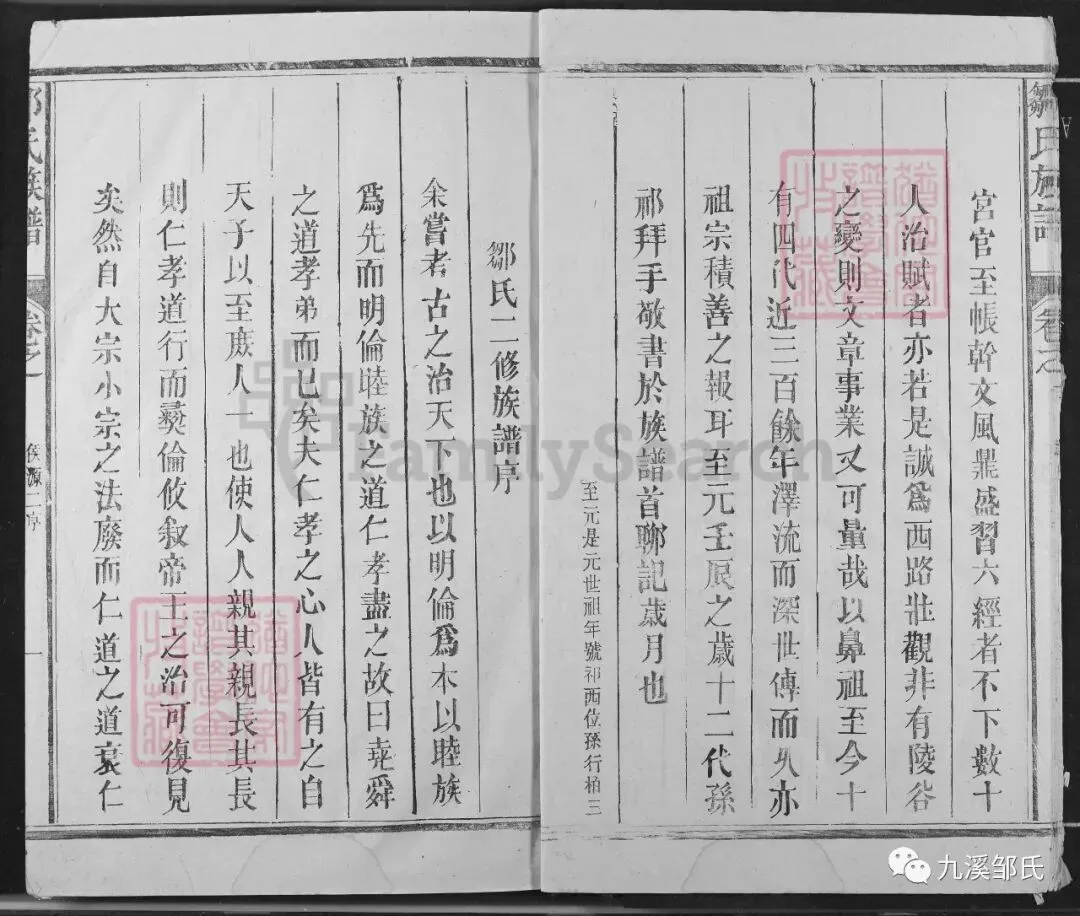 鄒氏族譜
卷之一
宮官至帳幹文風鼎盛習六經者不下數十
人治賦者亦若是誠爲西路壯觀非有陵谷
之變則文章事業又可量哉以鼻祖至今十
有四代近三百餘年澤流而深世傳而久亦
祖宗積善之報耳至元壬辰之歲十二代孫
祁拜手敬書於族譜首聊記歲月也
至元是元世祖年號祁西位孫行柏三
鄒氏二修族譜序
余嘗考古之治天下也以明倫爲本以睦族
爲先而明倫睦族之道仁孝盡之故曰堯舜
之道孝弟而已矣夫仁孝之心人皆有之自
天子以至庶人一也使人人親其親長其長
則仁孝道行而彜倫攸叙帝王之治可復見
矣然自大宗小宗之法廢而仁道之道衰仁
鄒氏族譜
卷之一
侯源二序
一
FamilySearch
九溪邹氏